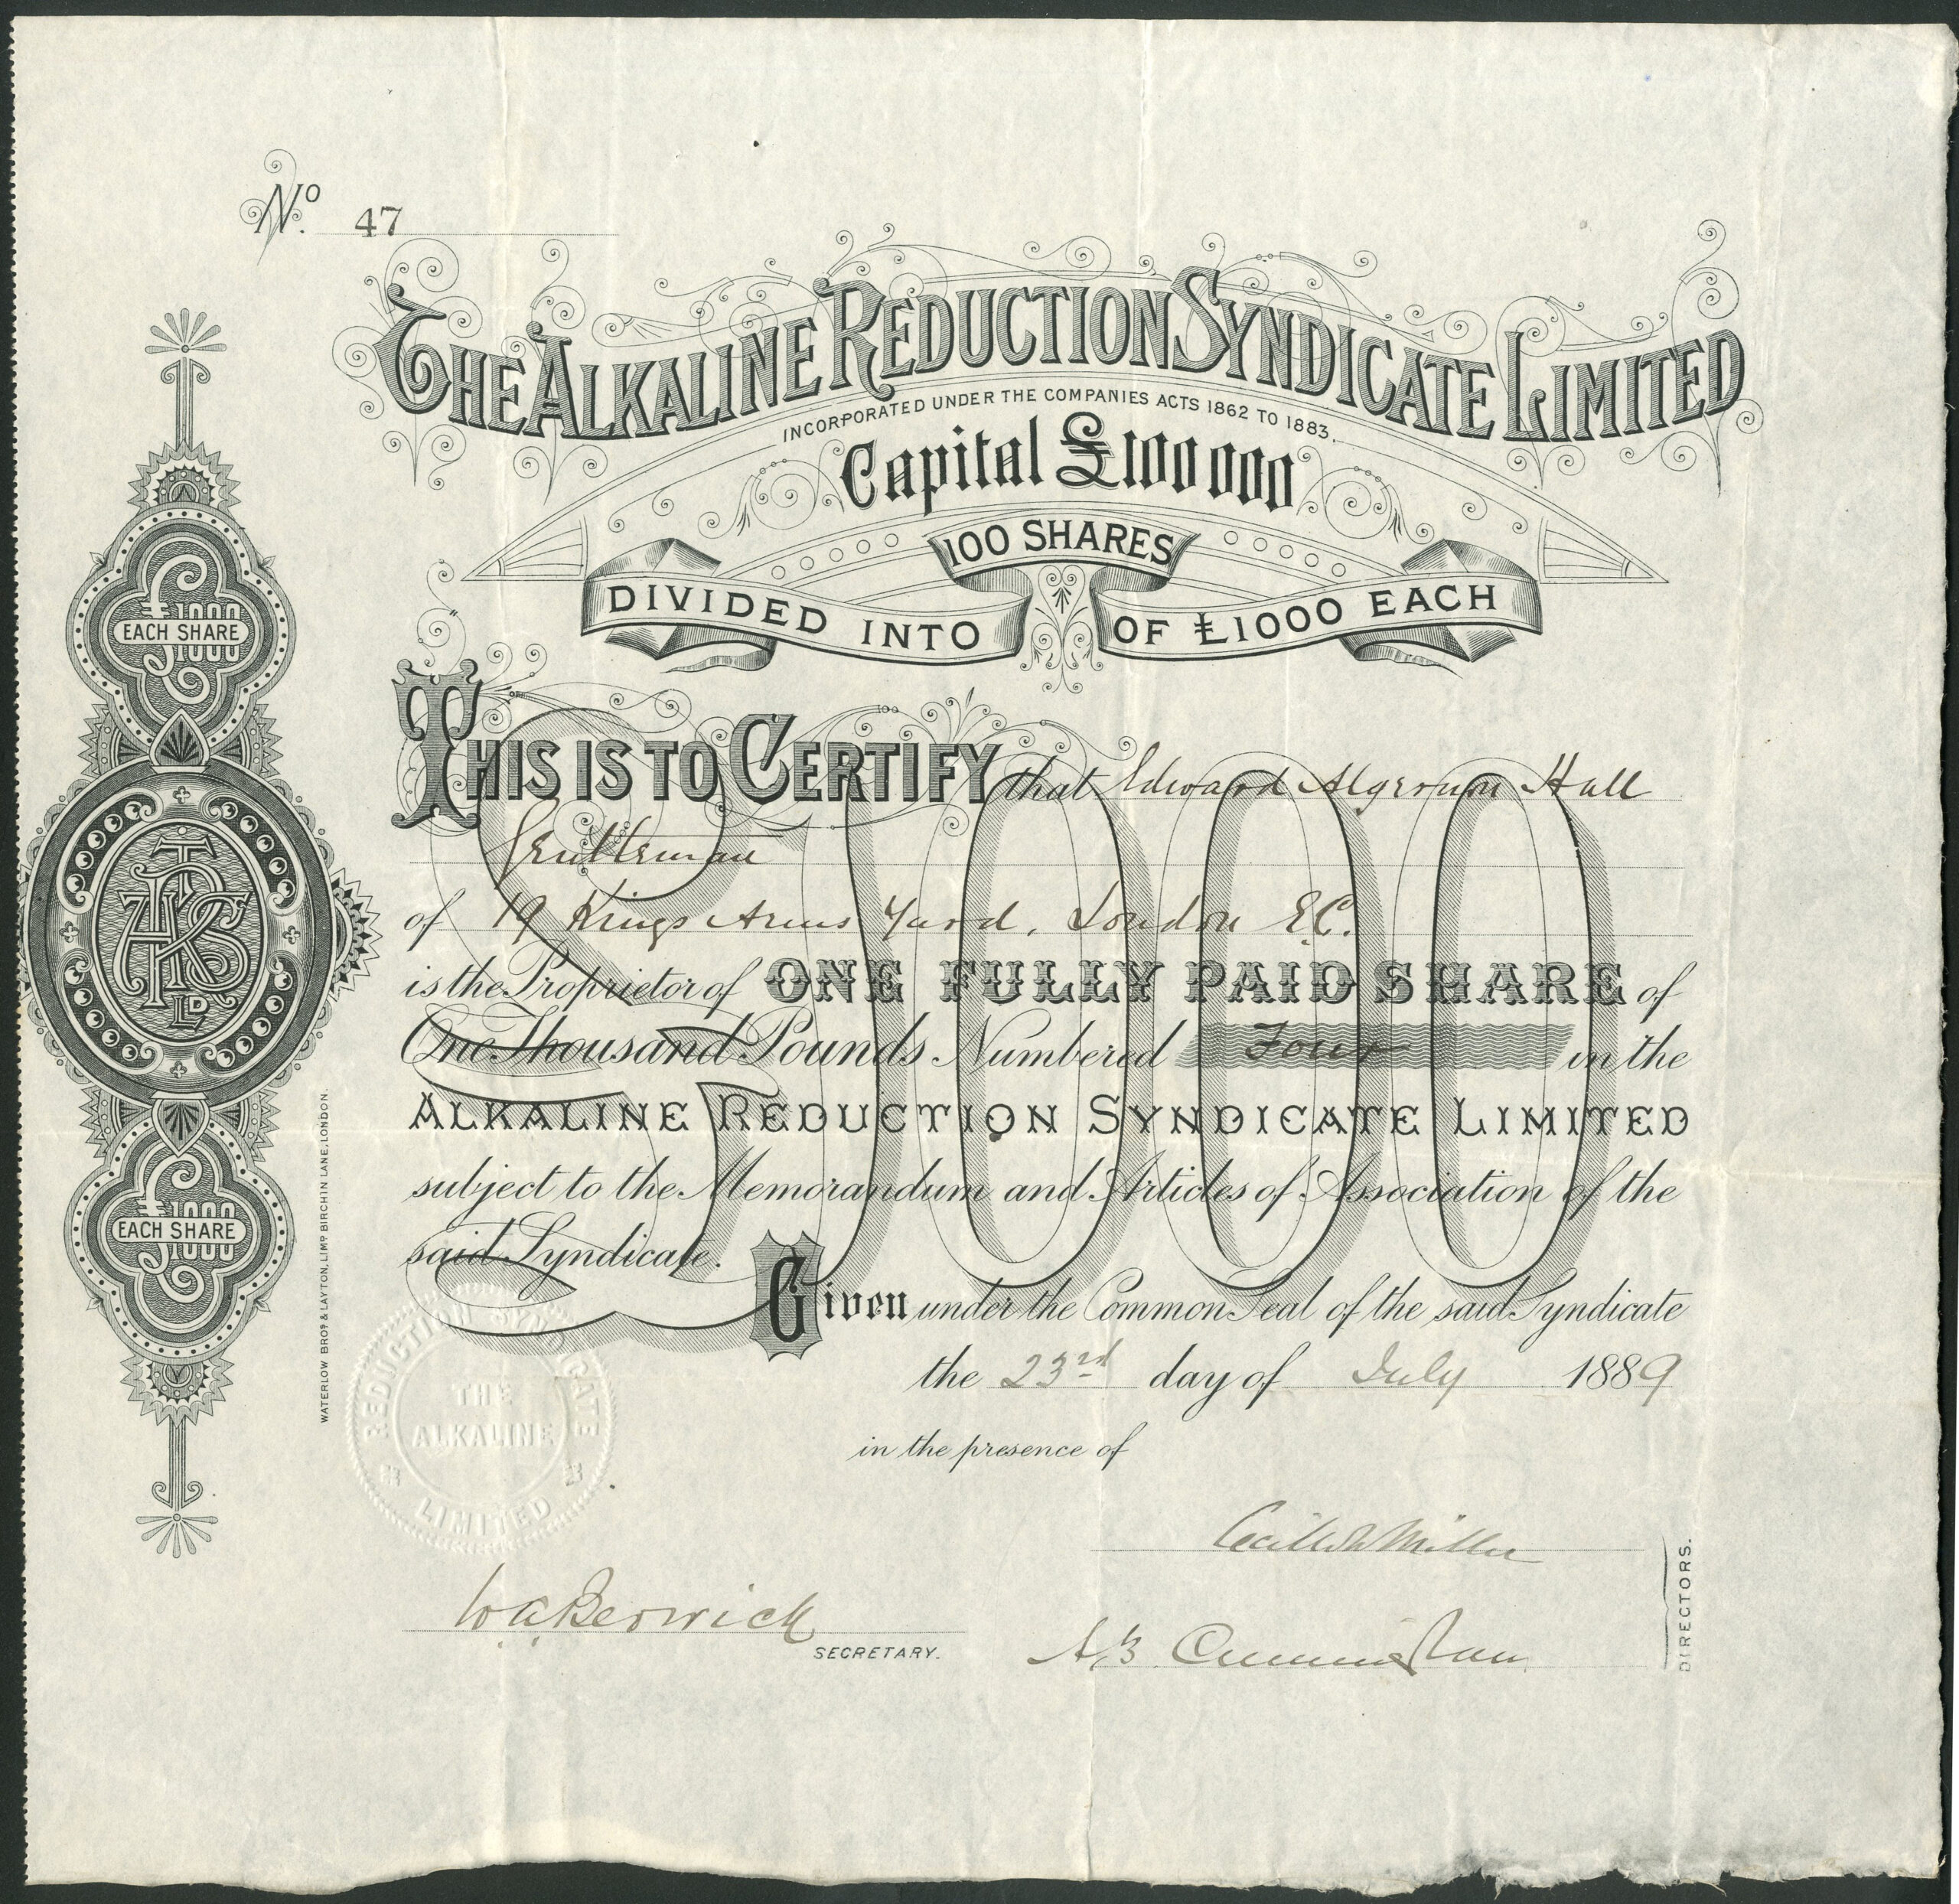 No. 47
THE ALKALINE REDUCTION SYNDICATE LIMITED
INCORPORATED UNDER THE COMPANIES ACTS 1862 TO 1883.
Capital £100 000
DIVIDED INTO 100 SHARES OF £1000 EACH
£1000
EACH SHARE
THIS IS TO CERTIFY that Edward Algernon Hall
Gentleman
of 19 Kings Arms Yard. London E.C.
is the Proprietor of ONE FULLY PAID SHARE of
One Thousand Pounds Numbered Four in the
ALKALINE REDUCTION SYNDICATE LIMITED
subject to the Memorandum and Articles of Association of the
said Syndicate.
£1000
TARS LD
£1000
EACH SHARE
WATERLOW BROS & LAYTON, LIMD BIRCHIN LANE, LONDON.
Given under the Common Seal of the said Syndicate
the 23rd day of July 1889
in the presence of
THE ALKALINE
REDUCTION SYNDICATE
LIMITED
Miller
W.A. Berwick
SECRETARY.
A.B. Cunningham
DIRECTORS.